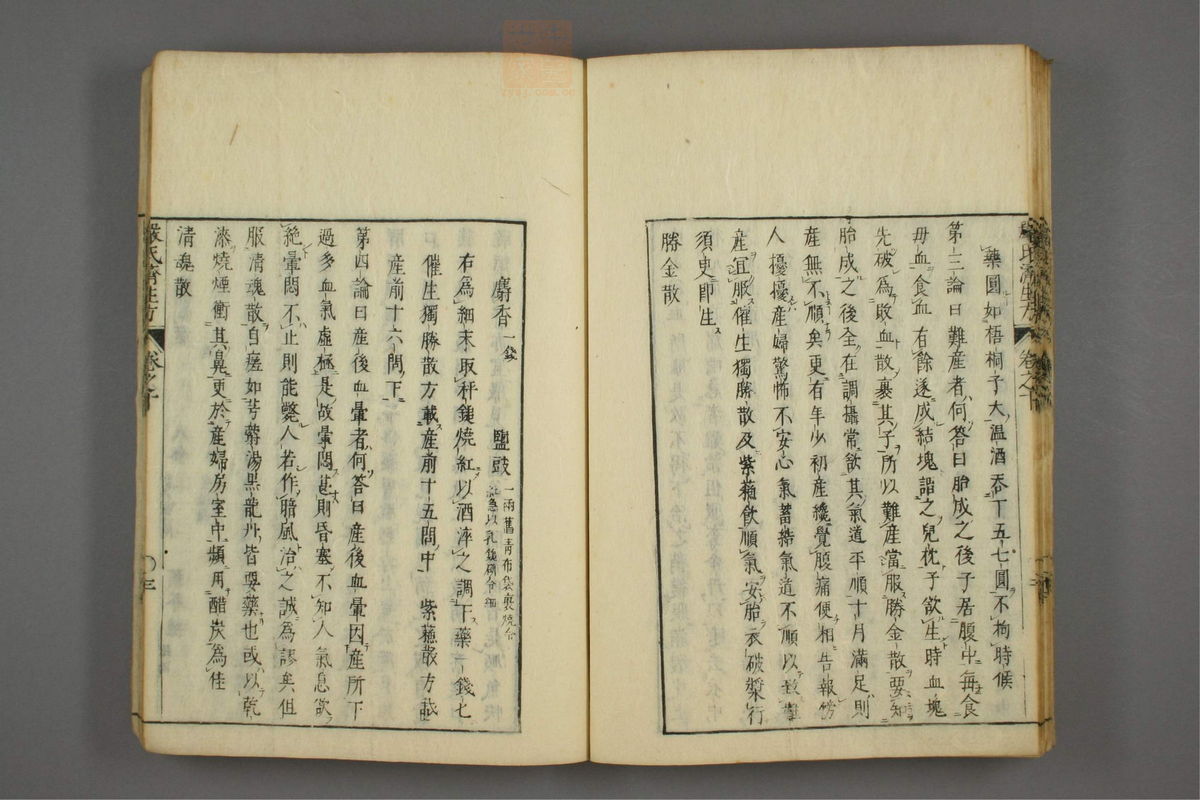 藥圓如梧桐子大温酒吞下五七圓不拘時候
第三論曰難産者何答曰胎成之後子居腹中每食
母血食血有餘遂成結塊謂之兒枕子欲生時血塊
先破爲敗血散裹其子所以難産當服勝金散要知
胎成之後全在調攝常飲其氣道平順十月滿足則
産無不順矣更有年少初産纔覺腹痛便相告報傍
人擾擾産婦驚怖不安心氣蓄結氣道不順以致難
産宜服催生獨勝散及紫蘓飲順氣安胎衣破漿行
須臾即生
勝金散
麝香一錢 鹽豉一兩舊青布袋裹燒令紅急以乳鎚研令細
右爲細末取秤鎚燒紅以酒淬之調下藥一錢匕
催生獨勝散方載産前十五問中 紫蘓散方載
産前十六問下
第四論曰産後血暈者何答曰産後血暈因産所下
過多血氣虛極是故暈悶甚則昏塞不知人氣息欲
絶暈悶不止則能斃人若作暗風治之誠爲謬矣但
服清魂散自瘥如芎藭湯黑龍丹皆要藥也或以乾
漆燒煙衝其鼻更於産婦房室中頻用醋炭爲佳
清魂散
嚴氏濟生方